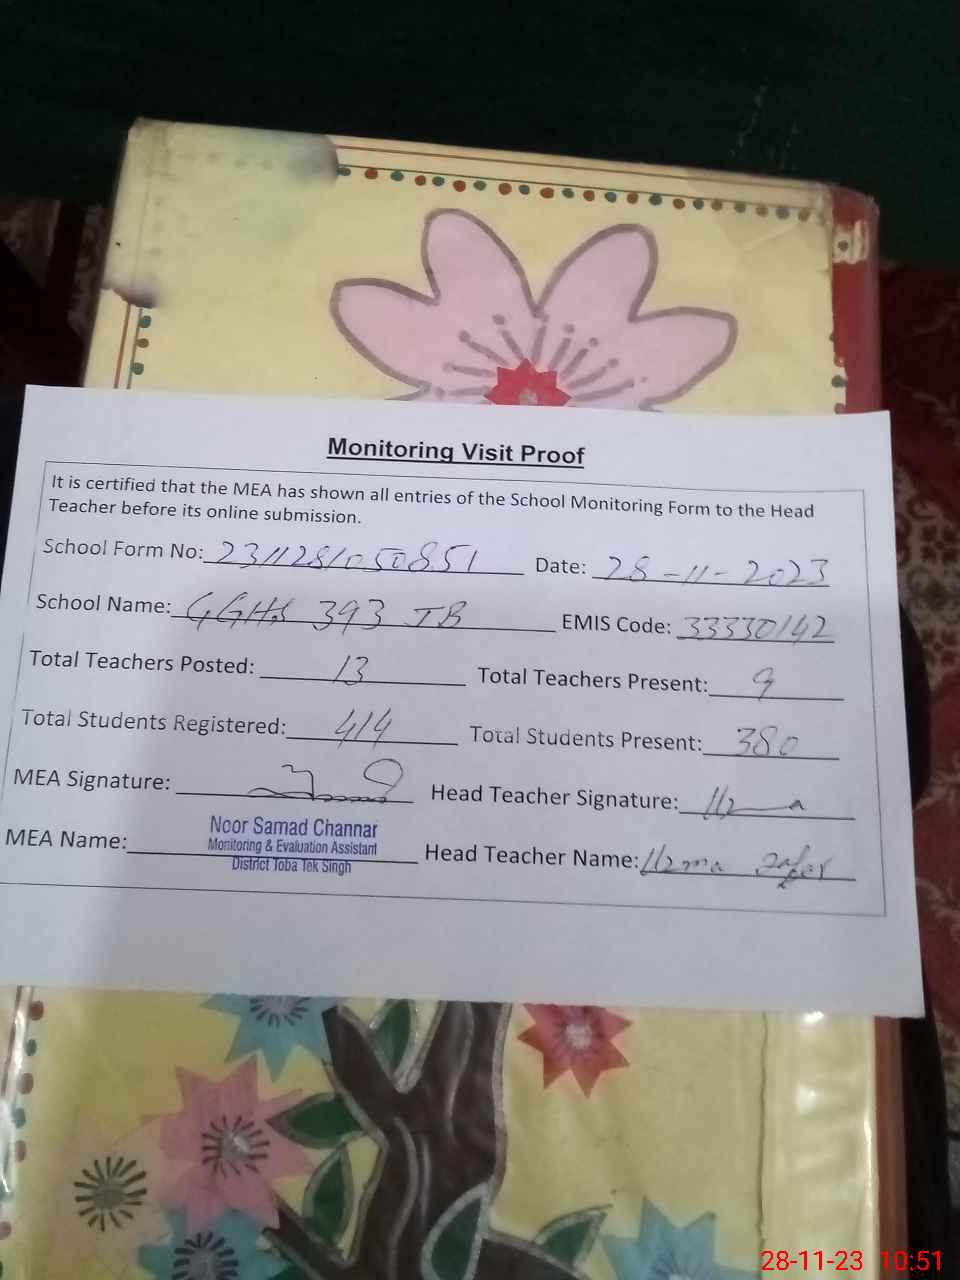 Monitoring Visit Proof
It is certified that the MEA has shown all entries of the School Monitoring Form to the Head
Teacher before its online submission.
School Form No: 2311281050851 Date: 28-11-2023
School Name: GGHS 393 JB EMIS Code: 33330142
Total Teachers Posted: 13 Total Teachers Present: 9
Total Students Registered: 414 Total Students Present: 380
MEA Signature: Head Teacher Signature: Uzma
MEA Name: Noor Samad Channar
Monitoring & Evaluation Assistant
District Toba Tek Singh
Head Teacher Name: Uzma Zafar
28-11-23 10:51